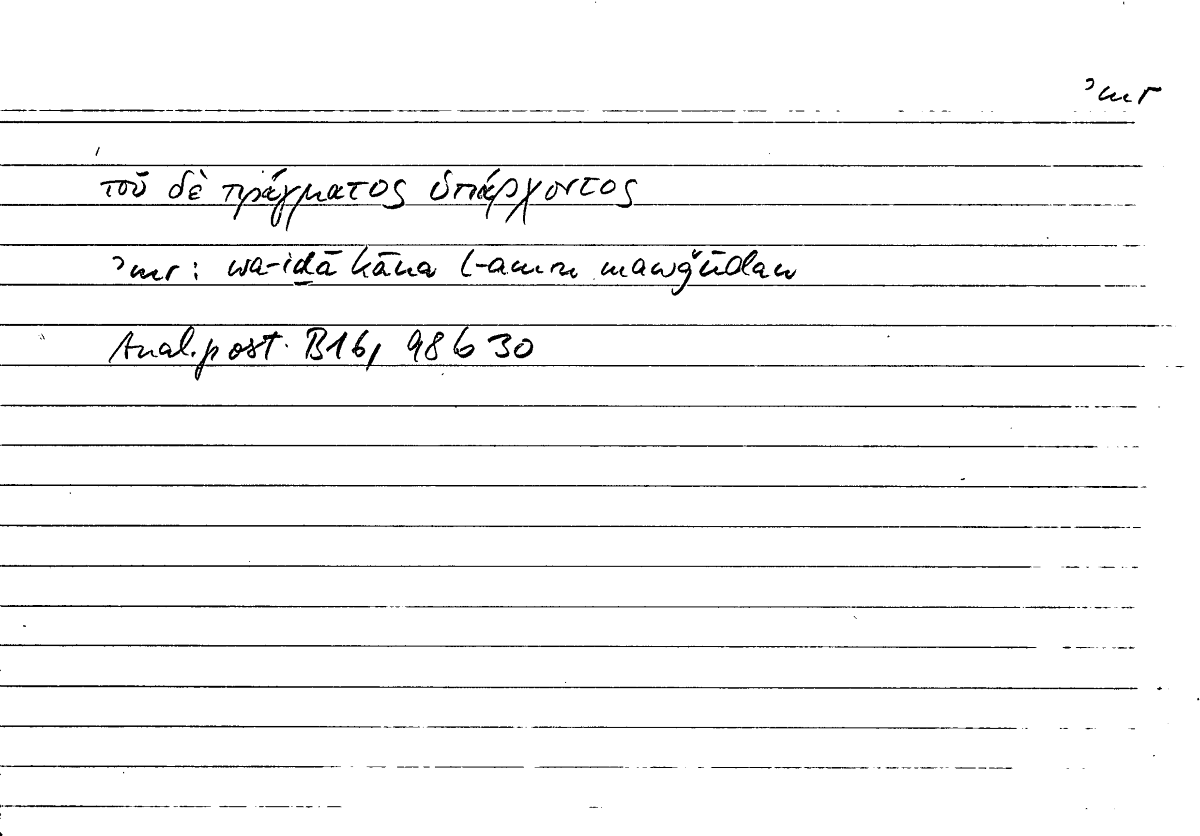 ʾmr
τοῦ δὲ πράγματος ὑπάρχοντος
ʾmr: wa-iḏā kāna l-amru mawǧūdan
Anal. post. B16, 98b30